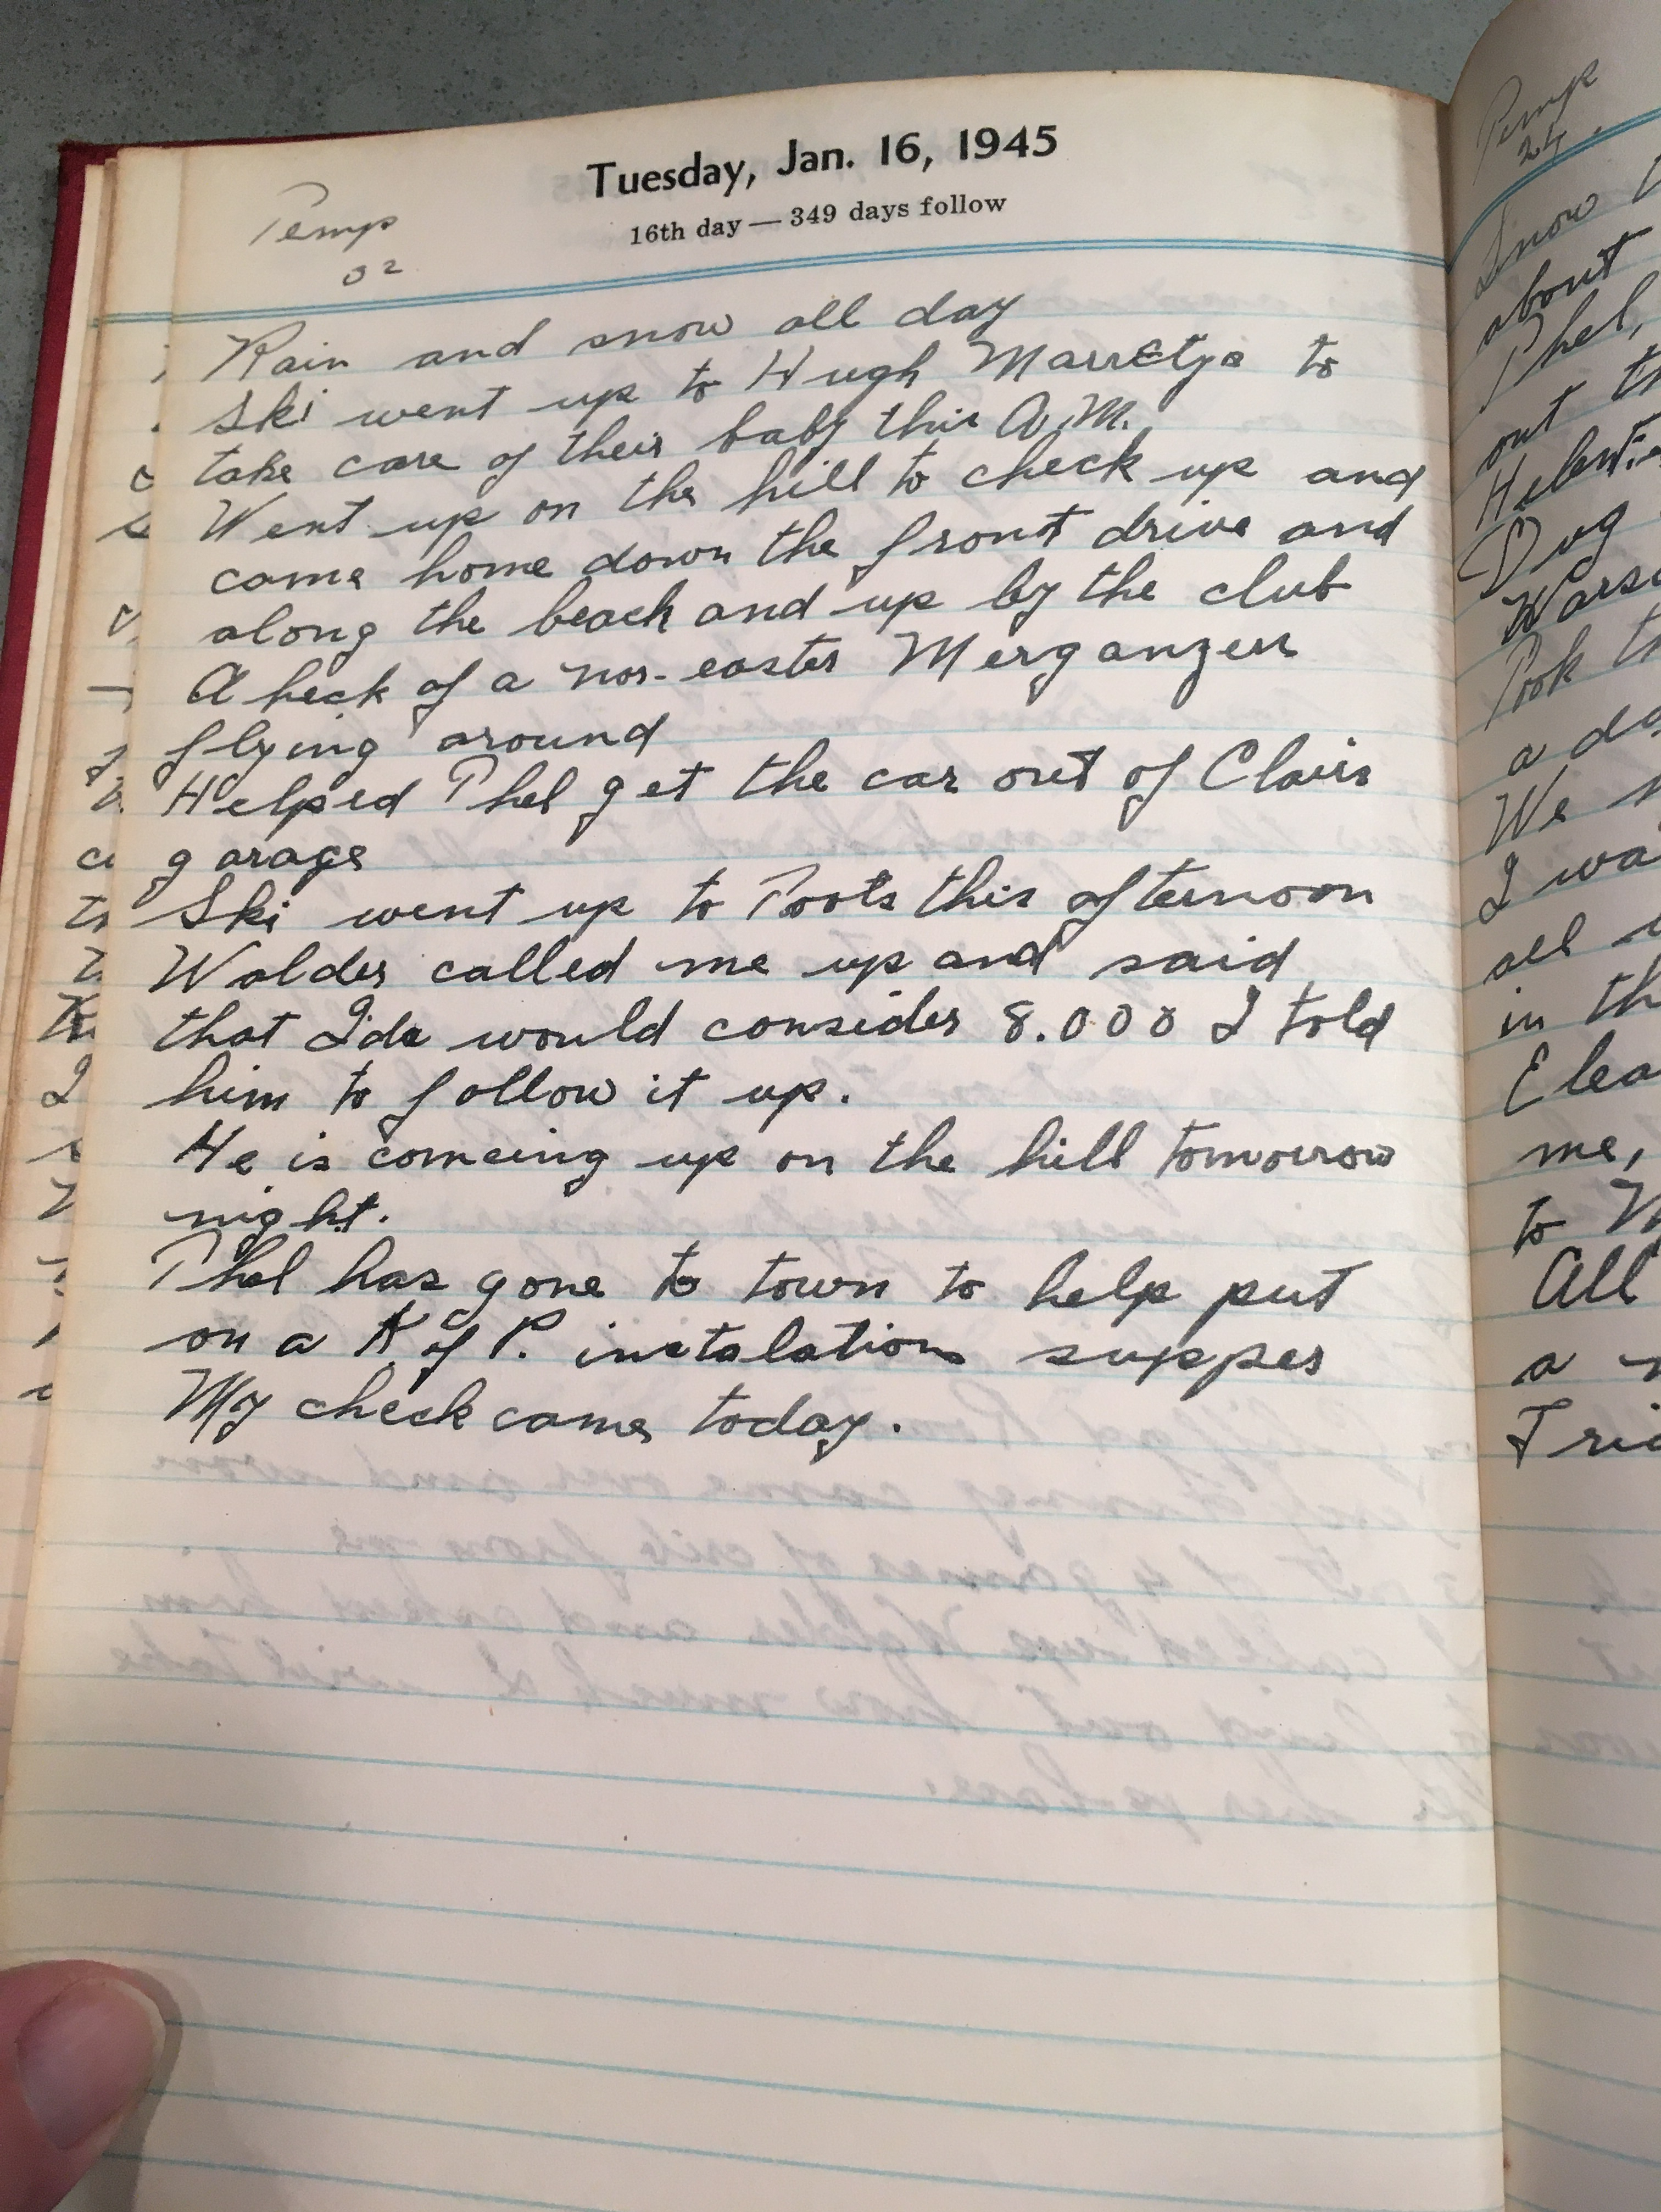 Tuesday, Jan. 16, 1945
16th day — 349 days follow
Temp
32
Rain and snow all day
Ski went up to Hugh to
take care of their baby this A.M.
Went up on the hill to check up and
came home down the front drive and
along the beach and up by the club
A heck of a nor-easter Merganzers
flying around
Helped Phel get the car out of Clairs
garage
Ski went up to Toots this afternoon
Walder called me up and said
that Ida would consider 8.000 I told
him to follow it up.
He is comeing up on the hill tomorrow
night.
Phel has gone to town to help put
on a K of P. instalation supper
My check came today.
Temp
24
Snow
about
Phel,
out
Dog
Took
We
I wa
all
in th
Elea
me,
to
All
a
Fri